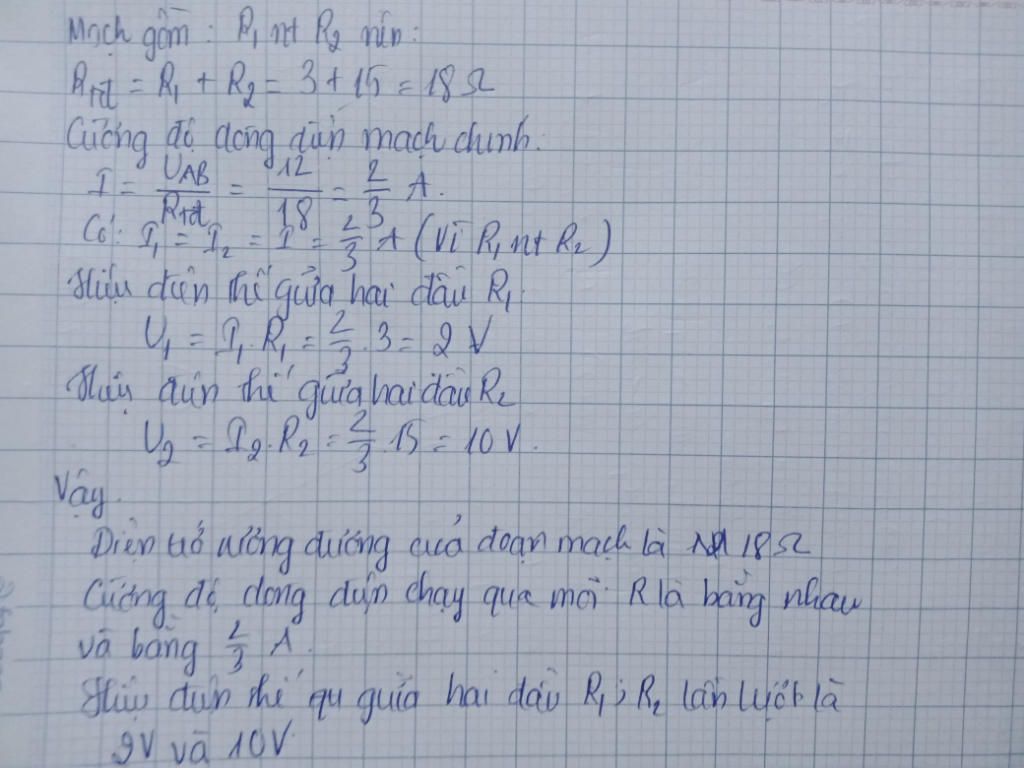 Mạch gồm : R₁ nt R₂ nên :
Rtđ = R₁ + R₂ = 3 + 15 = 18 Ω
Cường độ dòng điện mạch chính.
I = U_AB/Rtđ = 12/18 = 2/3 A.
Có: I₁ = I₂ = I = 2/3 A (vì R₁ nt R₂)
Hiệu điện thế giữa hai đầu R₁
U₁ = I₁.R₁ = 2/3 . 3 = 2 V
Hiệu điện thế giữa hai đầu R₂
U₂ = I₂.R₂ = 2/3 . 15 = 10 V.
Vậy.
Điện trở tương đương của đoạn mạch là 18 Ω
Cường độ dòng điện chạy qua mỗi R là bằng nhau
và bằng 2/3 A.
Hiệu điện thế qu giữa hai đầu R₁ ; R₂ lần lượt là
2V và 10V